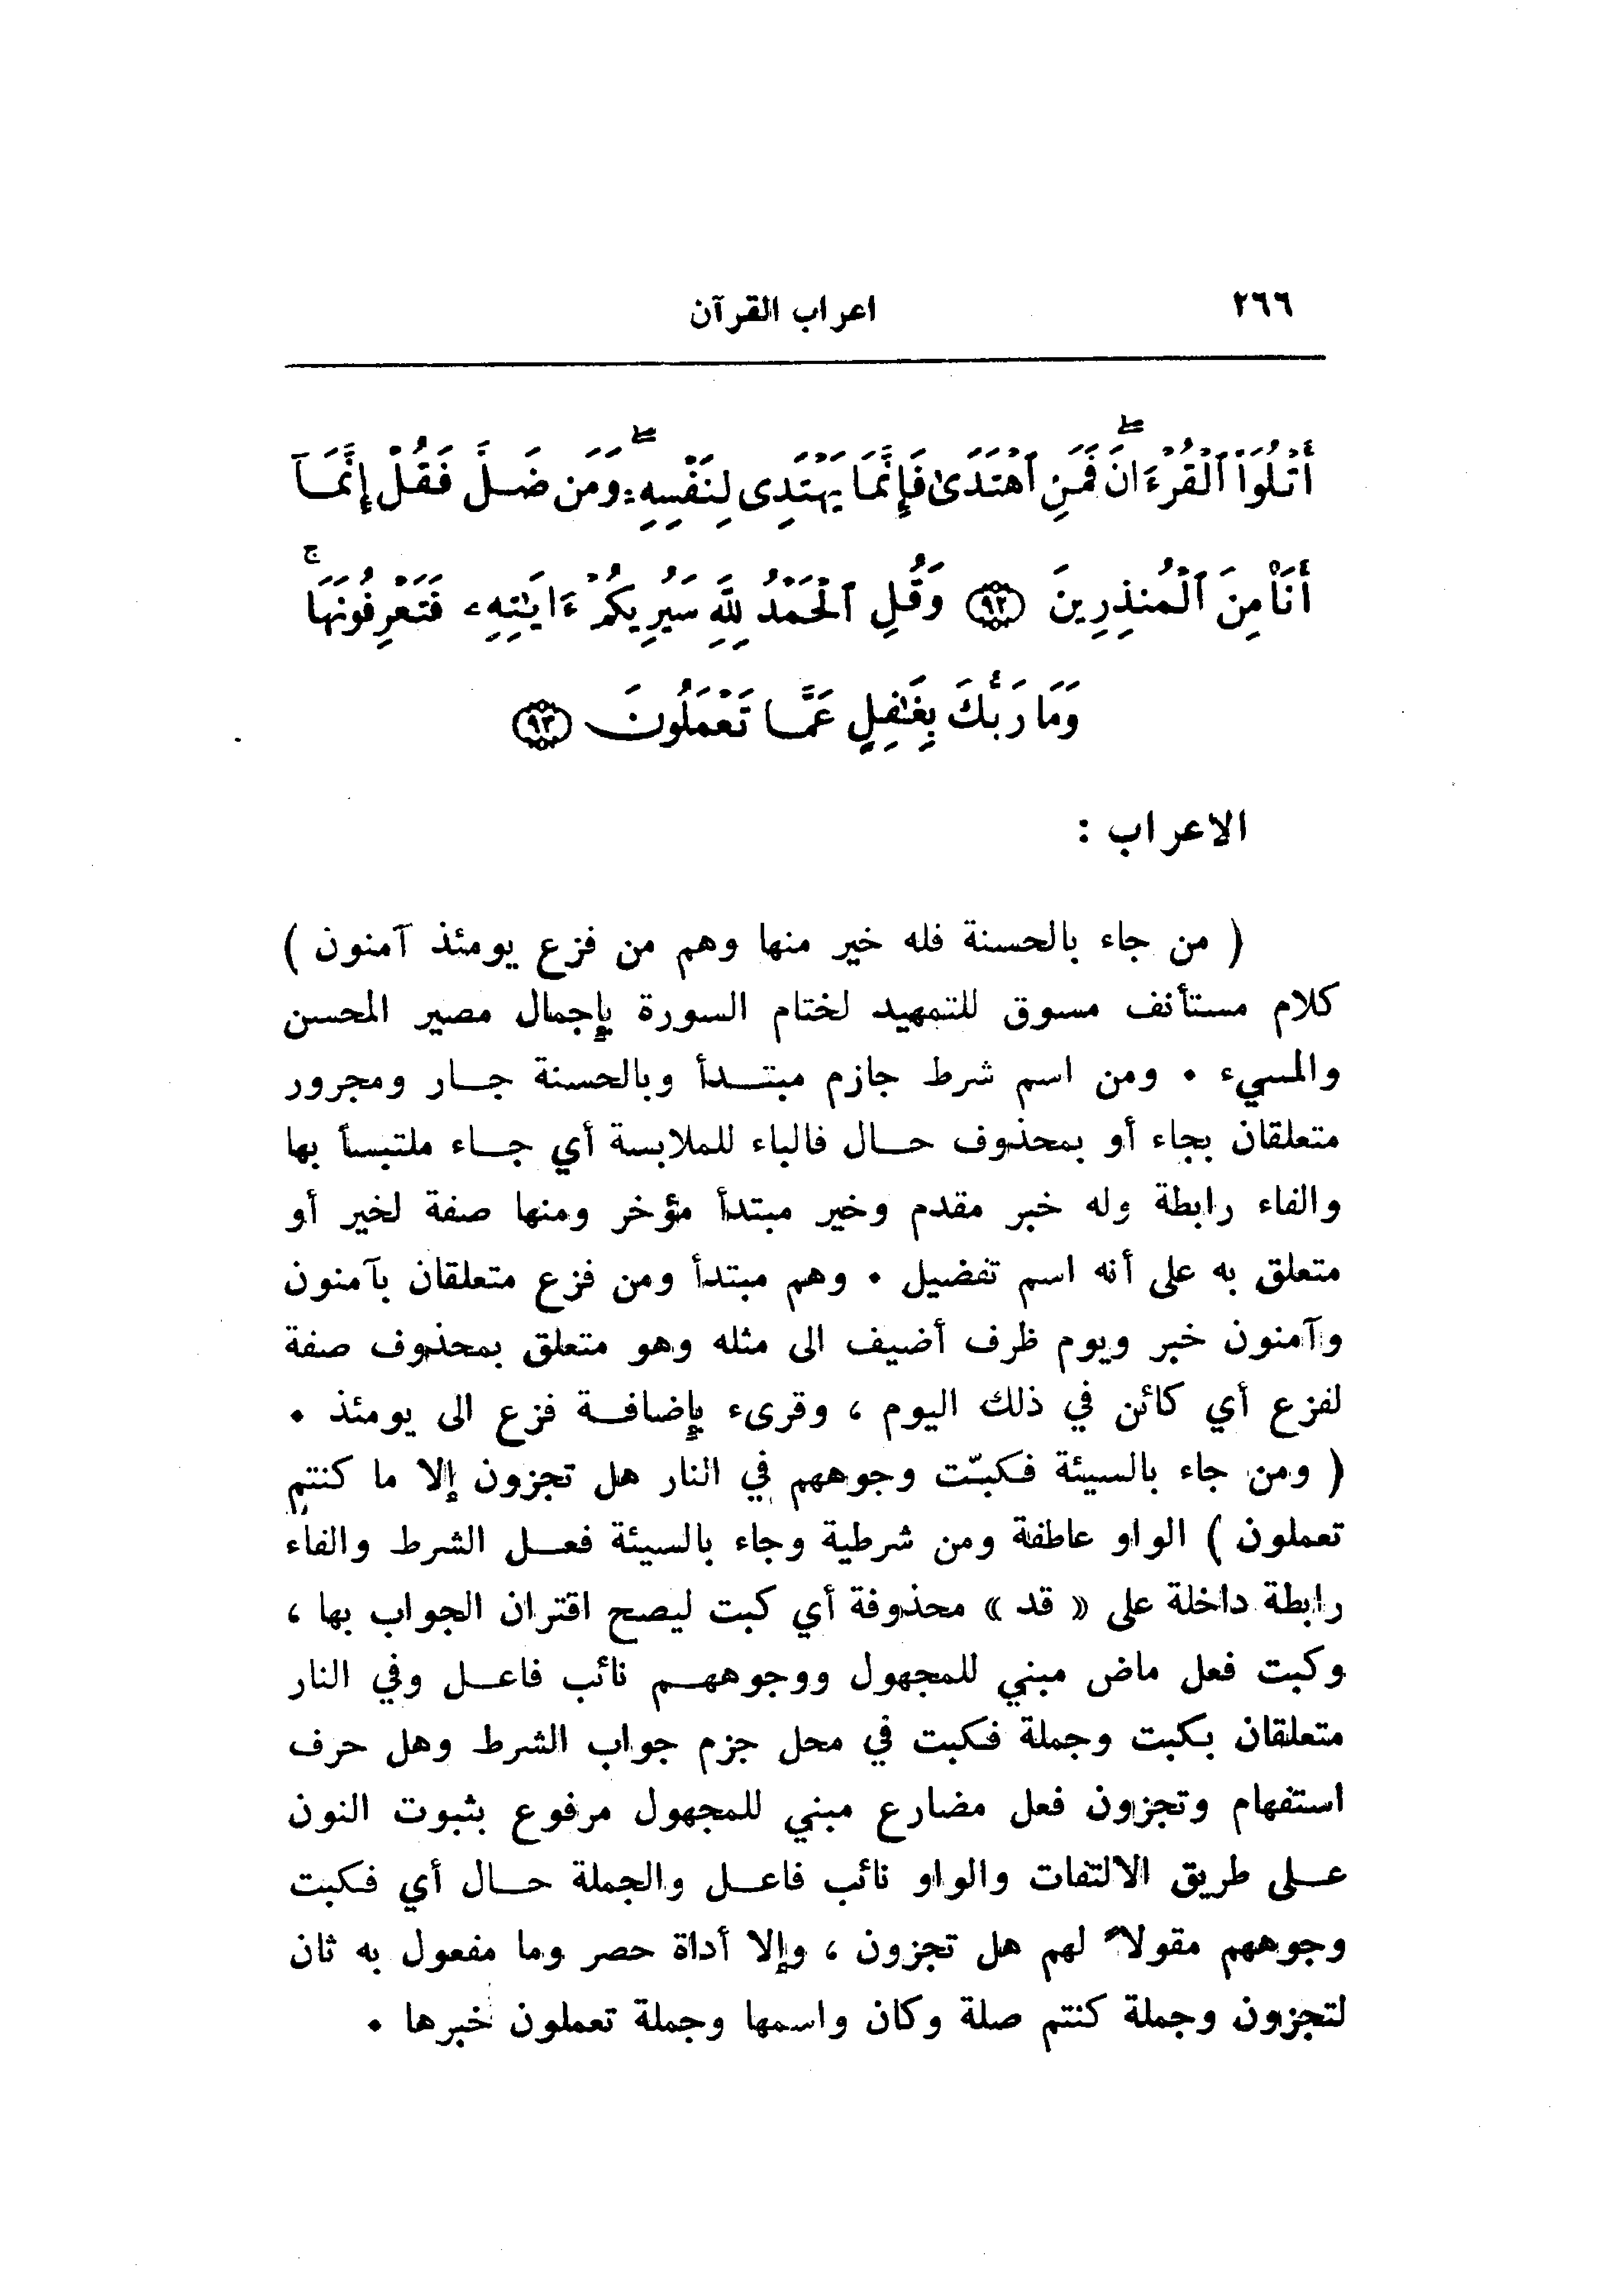 ٢٦٦ اعراب القرآن
أَتْلُوَا۟ ٱلْقُرْءَانَ ۖ فَمَنِ ٱهْتَدَىٰ فَإِنَّمَا يَهْتَدِى لِنَفْسِهِۦ ۖ وَمَن ضَلَّ فَقُلْ إِنَّمَآ
أَنَا۠ مِنَ ٱلْمُنذِرِينَ ﴿٩٢﴾ وَقُلِ ٱلْحَمْدُ لِلَّهِ سَيُرِيكُمْ ءَايَـٰتِهِۦ فَتَعْرِفُونَهَا ۚ
وَمَا رَبُّكَ بِغَـٰفِلٍ عَمَّا تَعْمَلُونَ ﴿٩٣﴾
الاعراب :
( من جاء بالحسنة فله خير منها وهم من فزع يومئذ آمنون )
كلام مستأنف مسوق للتمهيد لختام السورة بإجمال مصير المحسن
والمسيء . ومن اسم شرط جازم مبتدأ وبالحسنة جار ومجرور
متعلقان بجاء أو بمحذوف حال فالباء للملابسة أي جاء ملتبساً بها
والفاء رابطة وله خبر مقدم وخير مبتدأ مؤخر ومنها صفة لخير أو
متعلق به على أنه اسم تفضيل . وهم مبتدأ ومن فزع متعلقان بآمنون
وآمنون خبر ويوم ظرف أضيف الى مثله وهو متعلق بمحذوف صفة
لفزع أي كائن في ذلك اليوم ، وقرىء بإضافة فزع الى يومئذ .
( ومن جاء بالسيئة فكبّت وجوههم في النار هل تجزون إلا ما كنتم
تعملون ) الواو عاطفة ومن شرطية وجاء بالسيئة فعل الشرط والفاء
رابطة داخلة على « قد » محذوفة أي كبت ليصح اقتران الجواب بها ،
وكبت فعل ماض مبني للمجهول ووجوههم نائب فاعل وفي النار
متعلقان بكبت وجملة فكبت في محل جزم جواب الشرط وهل حرف
استفهام وتجزون فعل مضارع مبني للمجهول مرفوع بثبوت النون
على طريق الالتفات والواو نائب فاعل والجملة حال أي فكبت
وجوههم مقولاً لهم هل تجزون ، وإلا أداة حصر وما مفعول به ثان
لتجزون وجملة كنتم صلة وكان واسمها وجملة تعملون خبرها .